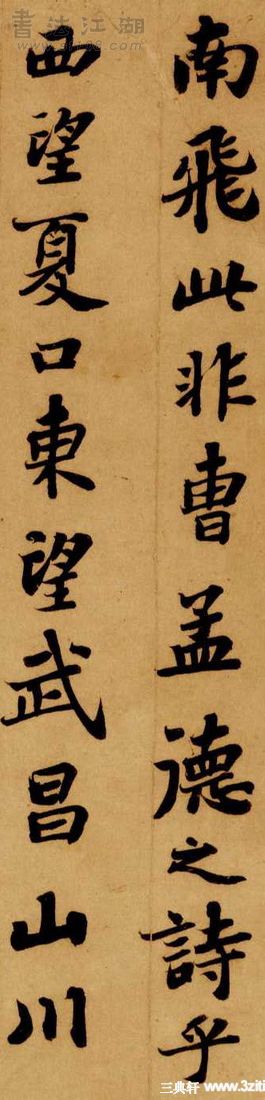 南飛此非曹孟德之詩乎
西望夏口東望武昌山川
書法江湖
三典轩 www.3ziti